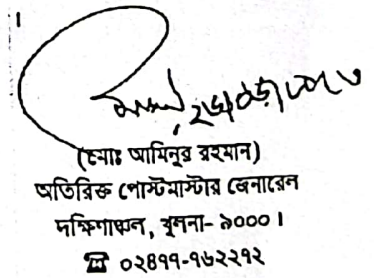 (মোঃ আমিনুর রহমান)
অতিরিক্ত পোস্টমাস্টার জেনারেল
দক্ষিণাঞ্চল, খুলনা- ৯০০০।
☎ ০২৪৭৭-৭৬২২৭২